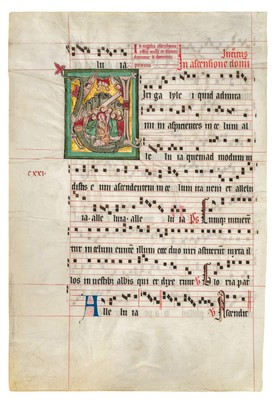 lu ia In ascensione domi
iri ga lyle i quid admira
mi ni in aspicientes in ce lum al
le lu ia quemad modum vi
CXXI
distis e um ascendentem in ce lum ita veni et allelu
ia alle luia alle lu ia Ps Cumq intueren
tur in celum eunte illum ecce duo viri astiterunt iuxta il
los in vestibus albis qui et dixe runt V Glo ria pat
Alle lu ia V Ascendit